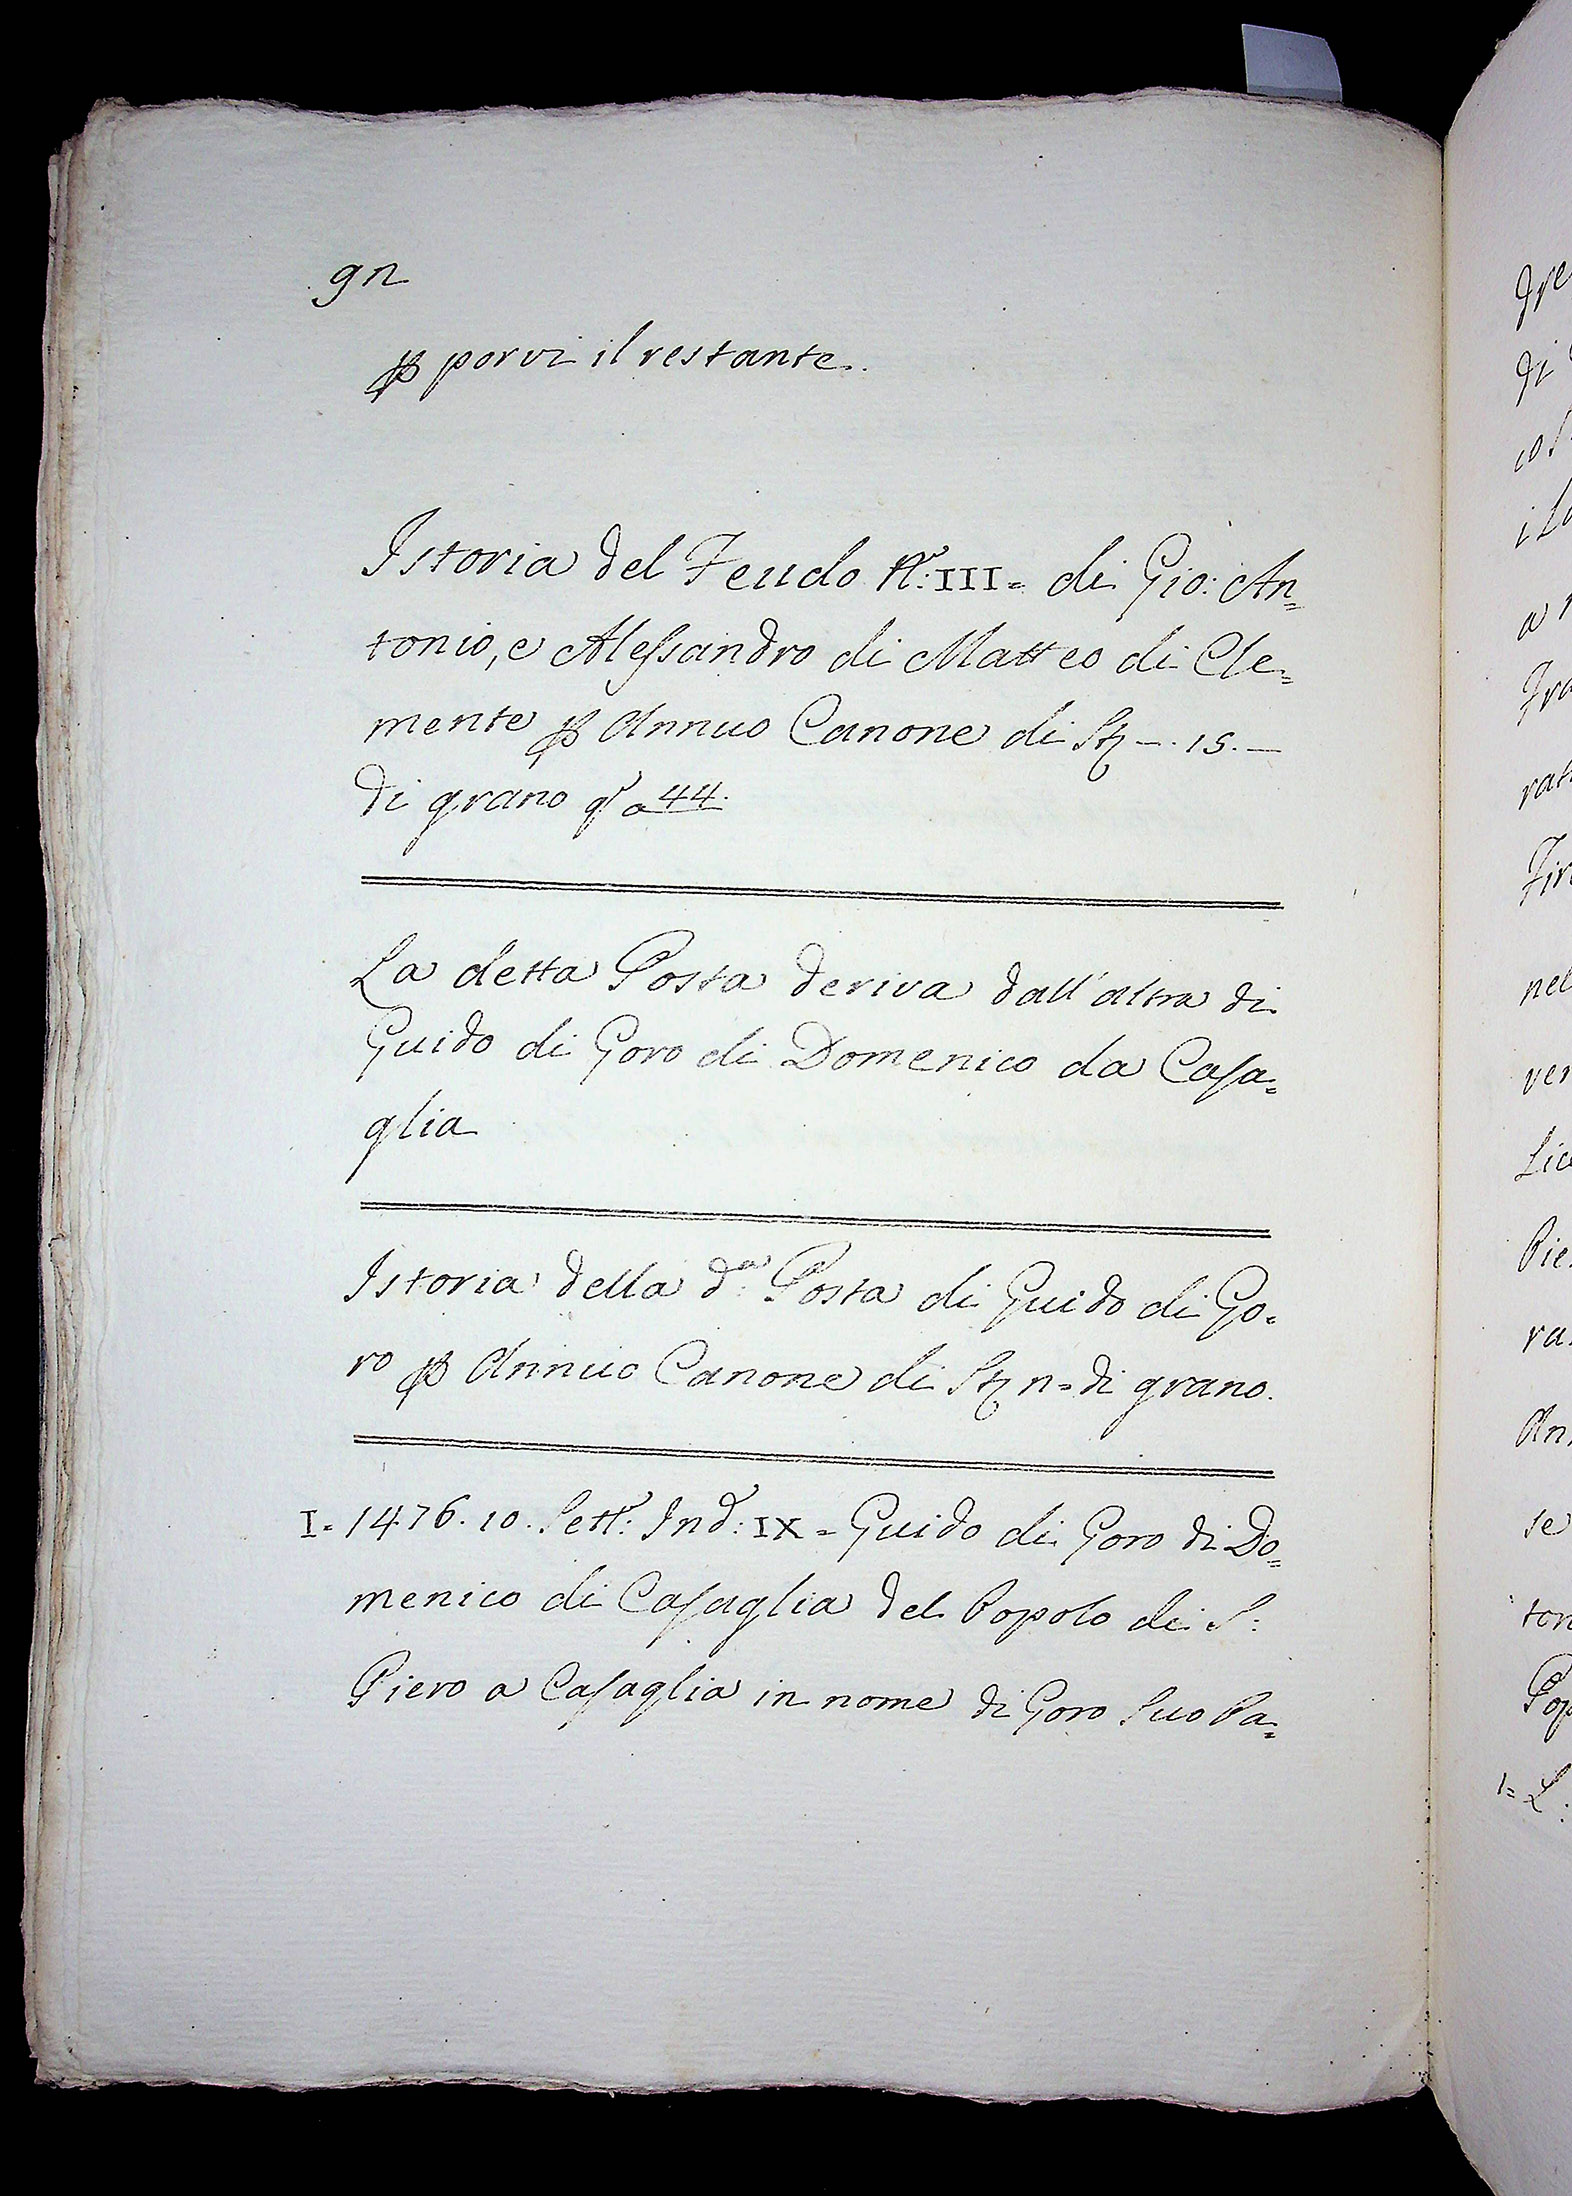 92
p porvi il restante.
Istoria del Feudo N.º: III= di Gio: An=
tonio, e Alessandro di Matteo di Cle=
mente p Annuo Canone di St -. 15. -
di grano qº a 44.
La detta Posta deriva dall'altra di
Guido di Goro di Domenico da Casa=
glia
Istoria della dª Posta di Guido di Go=
ro p Annuo Canone di St 2= di grano.
I= 1476. 10. Sett.e: Ind.e: IX= Guido di Goro di Do=
menico di Casaglia del Popolo di S:
Piero a Casaglia in nome di Goro Suo Pa=